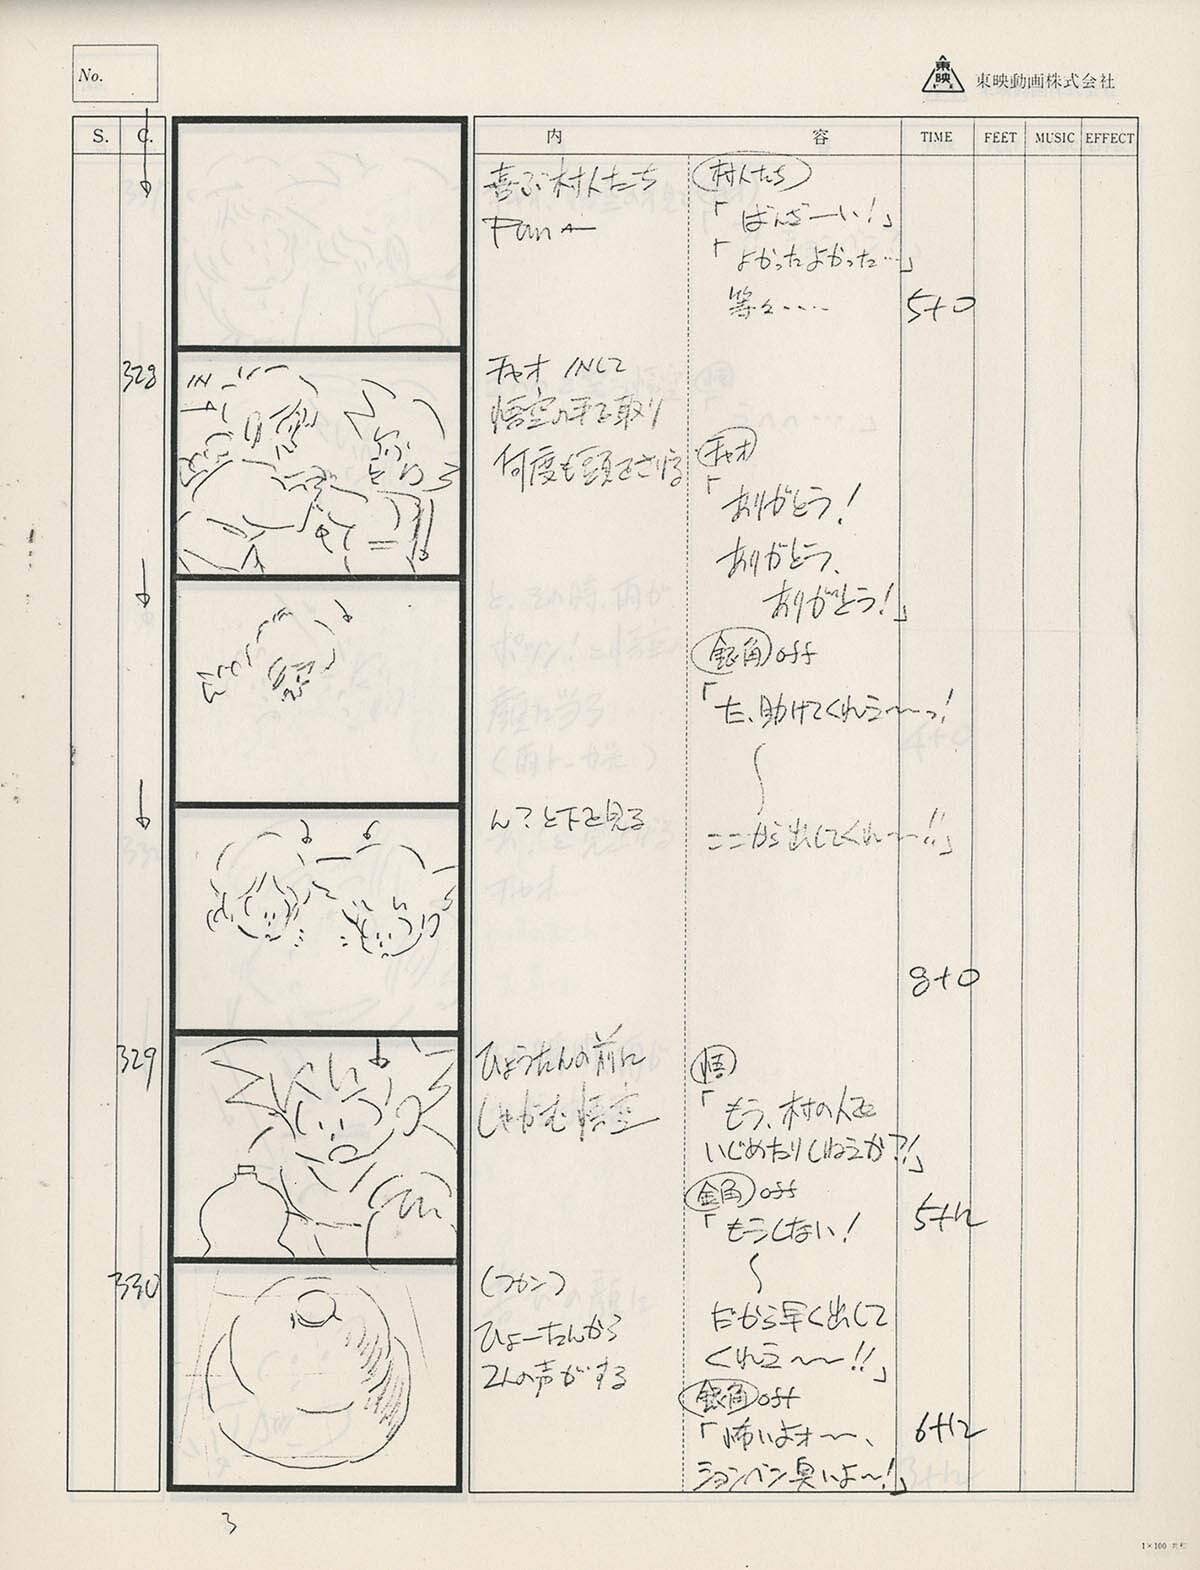 No.
東映
東映動画株式会社
S. C. 内 容 TIME FEET MUSIC EFFECT
喜ぶ村人たち
Pan
村人たち
「ばんざーい!」
「よかったよかった…」
等々‥‥
5+0
328
IN
チャオ INして
悟空の手を取り
何度も頭をさげる
チャオ
「ありがとう!
ありがとう、
ありがとう!」
銀角 off
「た、助けてくれえ〜〜っ!
ん?と下を見る
ここから出してくれ〜〜!!」
8+0
329
ひょうたんの前に
しゃがむ悟空
悟
「もう、村の人を
いじめたりしねえか?!」
金角 off
「もうしない!
5+12
330
(フカン)
ひょーたんから
2人の声がする
だから早く出して
くれえ〜〜!!」
銀角 off
「怖いよオ〜〜、
ションベン臭いよ〜!」
6+12
3
1×100